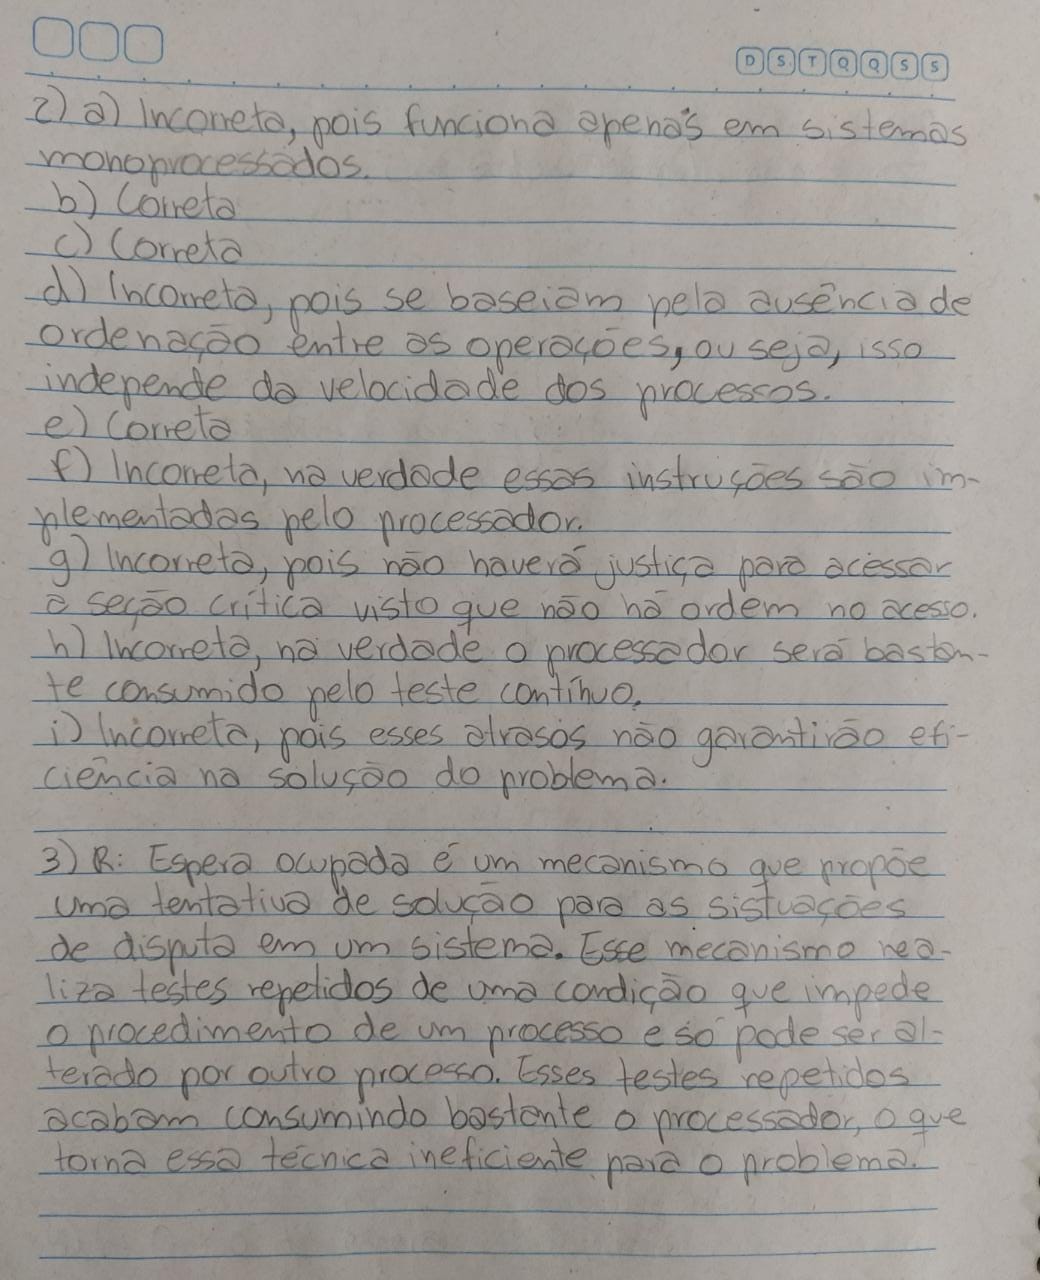 D S T Q Q S S
2) a) Incorreta, pois funciona apenas em sistemas
monoprocessados.
b) Correta
c) Correta
d) Incorreta, pois se baseiam pela ausência de
ordenação entre as operações, ou seja, isso
independe da velocidade dos processos.
e) Correta
f) Incorreta, na verdade essas instruções são im-
plementadas pelo processador.
g) Incorreta, pois não haverá justiça para acessar
a seção crítica visto que não há ordem no acesso.
h) Incorreta, na verdade o processador será bastan-
te consumido pelo teste contínuo.
i) Incorreta, pois esses atrasos não garantirão efi-
ciência na solução do problema.
3) R: Espera ocupada é um mecanismo que propõe
uma tentativa de solução para as sistuações
de disputa em um sistema. Esse mecanismo rea-
liza testes repetidos de uma condição que impede
o procedimento de um processo e só pode ser al-
terado por outro processo. Esses testes repetidos
acabam consumindo bastante o processador, o que
torna essa técnica ineficiente para o problema.